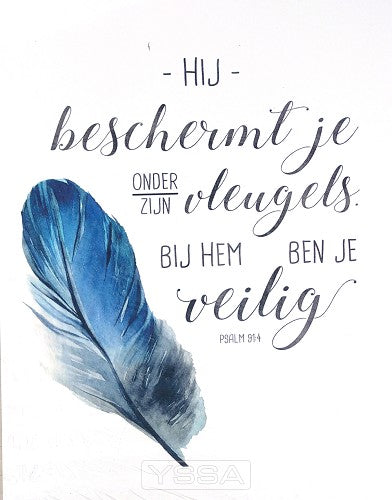 - HIJ -
beschermt je
ONDER
ZIJN vleugels.
BIJ HEM BEN JE
veilig
PSALM 91:4
YSSA